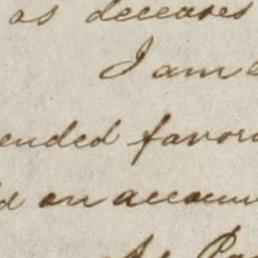 as deceases
I am
ended favor
d on accoun